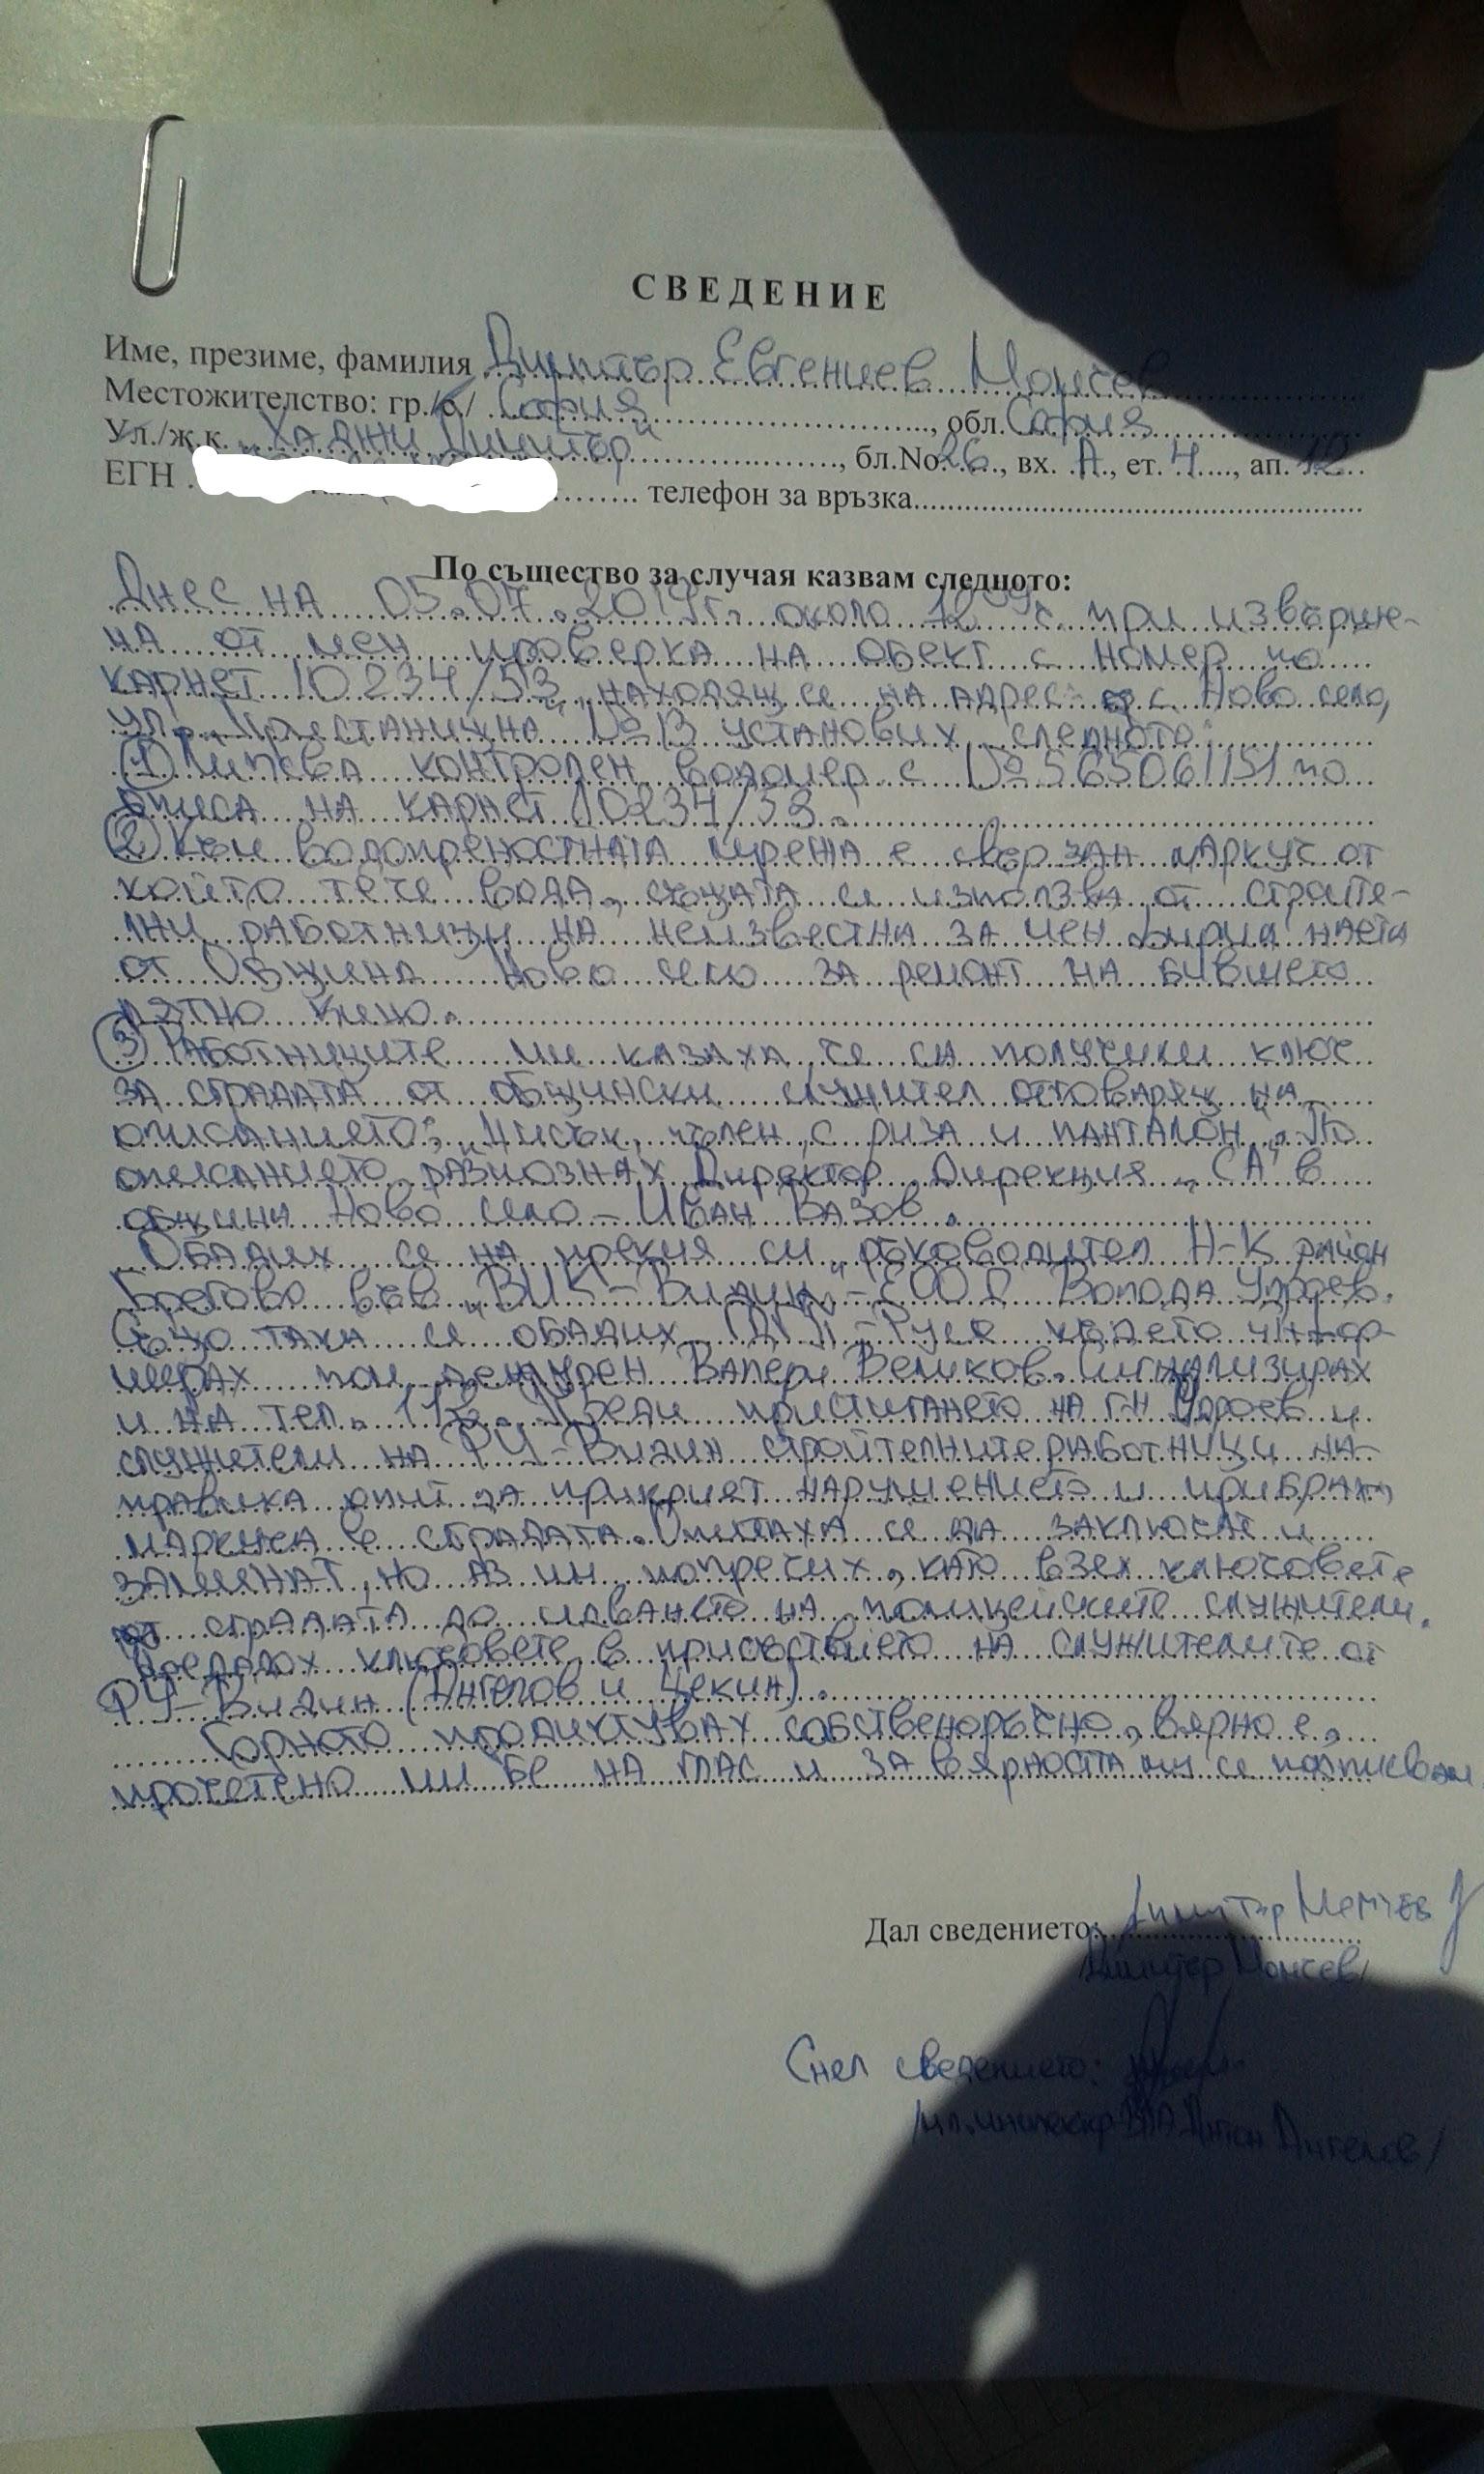 СВЕДЕНИЕ
Име, презиме, фамилия Димитър Евгениев
Местожителство: гр./с./ София, обл. София
Ул./ж.к. „Хаджи Димитър", бл.No 26, вх. А, ет. 4, ап. 12
ЕГН телефон за връзка
По същество за случая казвам следното:
Днес на 05.07. около при извърше-
на от мен проверка на обект с номер по
карнет 10234/53, находящ се на адрес: с. Ново село,
ул. № 13 установих следното:
① Липсва контролен водомер с № по
описа на карнет 10234/53.
② Към водопреносната мрежа е свързан маркуч от
който тече вода, същата се използва от строите-
лни работници на неизвестна за мен фирма наета
от Община Ново село за ремонт на бившето
лятно кино.
③ Работниците ми казаха, че са получили ключ
за сградата от общински служител отговарящ на
описанието: „Нисък, пълен, с риза и панталон". По
описанието разпознах Директор Дирекция „СА" в
община Ново село – Иван Вазов.
Обадих се на прекия си ръководител Н-к район
Брегово във „ВИК-Видин" – ЕООД Володя
Също така се обадих където инфор-
мирах Валери Великов. Сигнализирах
и на тел. 112. Преди пристигането на г-н и
служители на РУ-Видин строителните работници на-
правиха опит за прикрият нарушението и прибраха
маркуча в сградата. Опитаха се да заключат и
заминат, но аз им попречих, като взех ключовете
от сградата до идването на полицейските служители.
Предадох ключовете в присъствието на служителите от
РУ-Видин (Ангелов и Цекин).
Горното продиктувах собственоръчно, вярно е,
прочетено ми бе на глас и за вярността му се подписвам
Дал сведението: Димитър
/Димитър
Снел сведението:
/мл. инспектор Антон Ангелов/